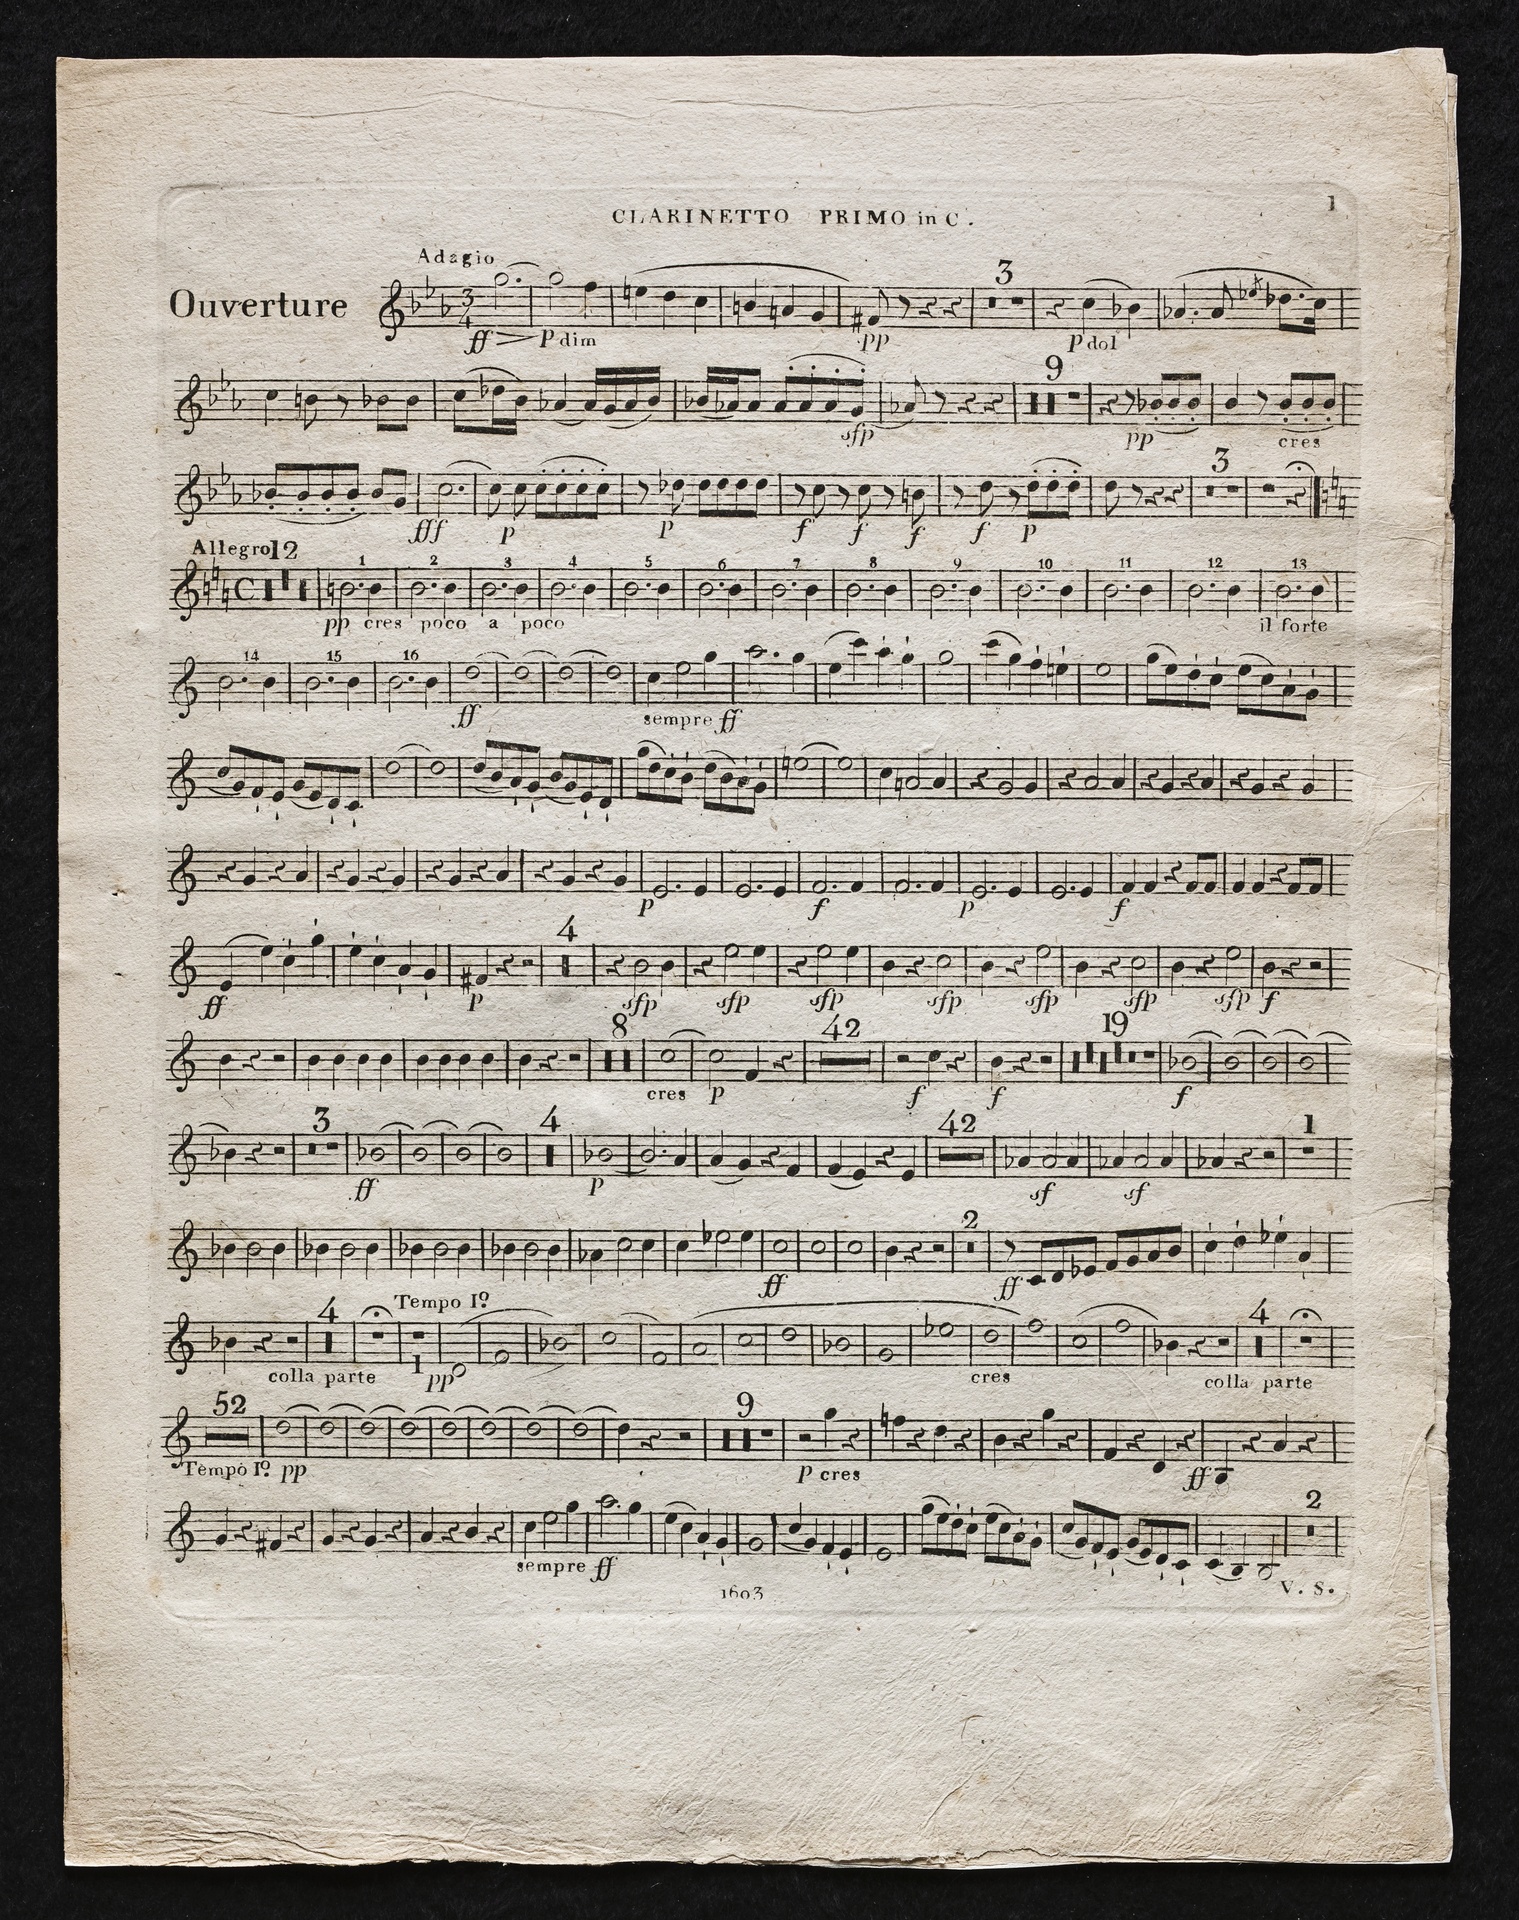 CLARINETTO PRIMO in C.
1
Adagio
Ouverture
3
3
4
ff p dim pp p dol
9
sfp pp cres
3
fff p p f f f f p
Allegro 12
1 2 3 4 5 6 7 8 9 10 11 12 13
C
pp cres poco a poco il forte
14 15 16
ff sempre ff
p f p f
4
ff p sfp sfp sfp sfp sfp sfp sfp f
8 42 19
cres p f f f
3 4 42 1
ff p sf sf
2
ff ff
4 Tempo Iº 4
colla parte 1 pp cres colla parte
52 9
Tempo Iº pp p cres ff
2
sempre ff
1603
V. S.